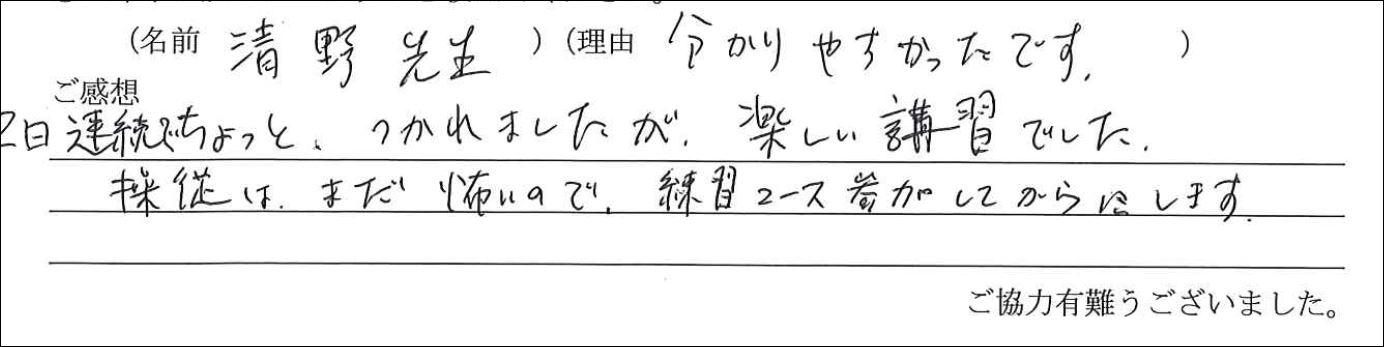 (名前 清野 先生 ) (理由 分かりやすかったです. )
ご感想
2日連続でちょっと、つかれましたが、楽しい講習でした.
操従は、まだ怖いので、練習コース参加してからにします.
ご協力有難うございました。